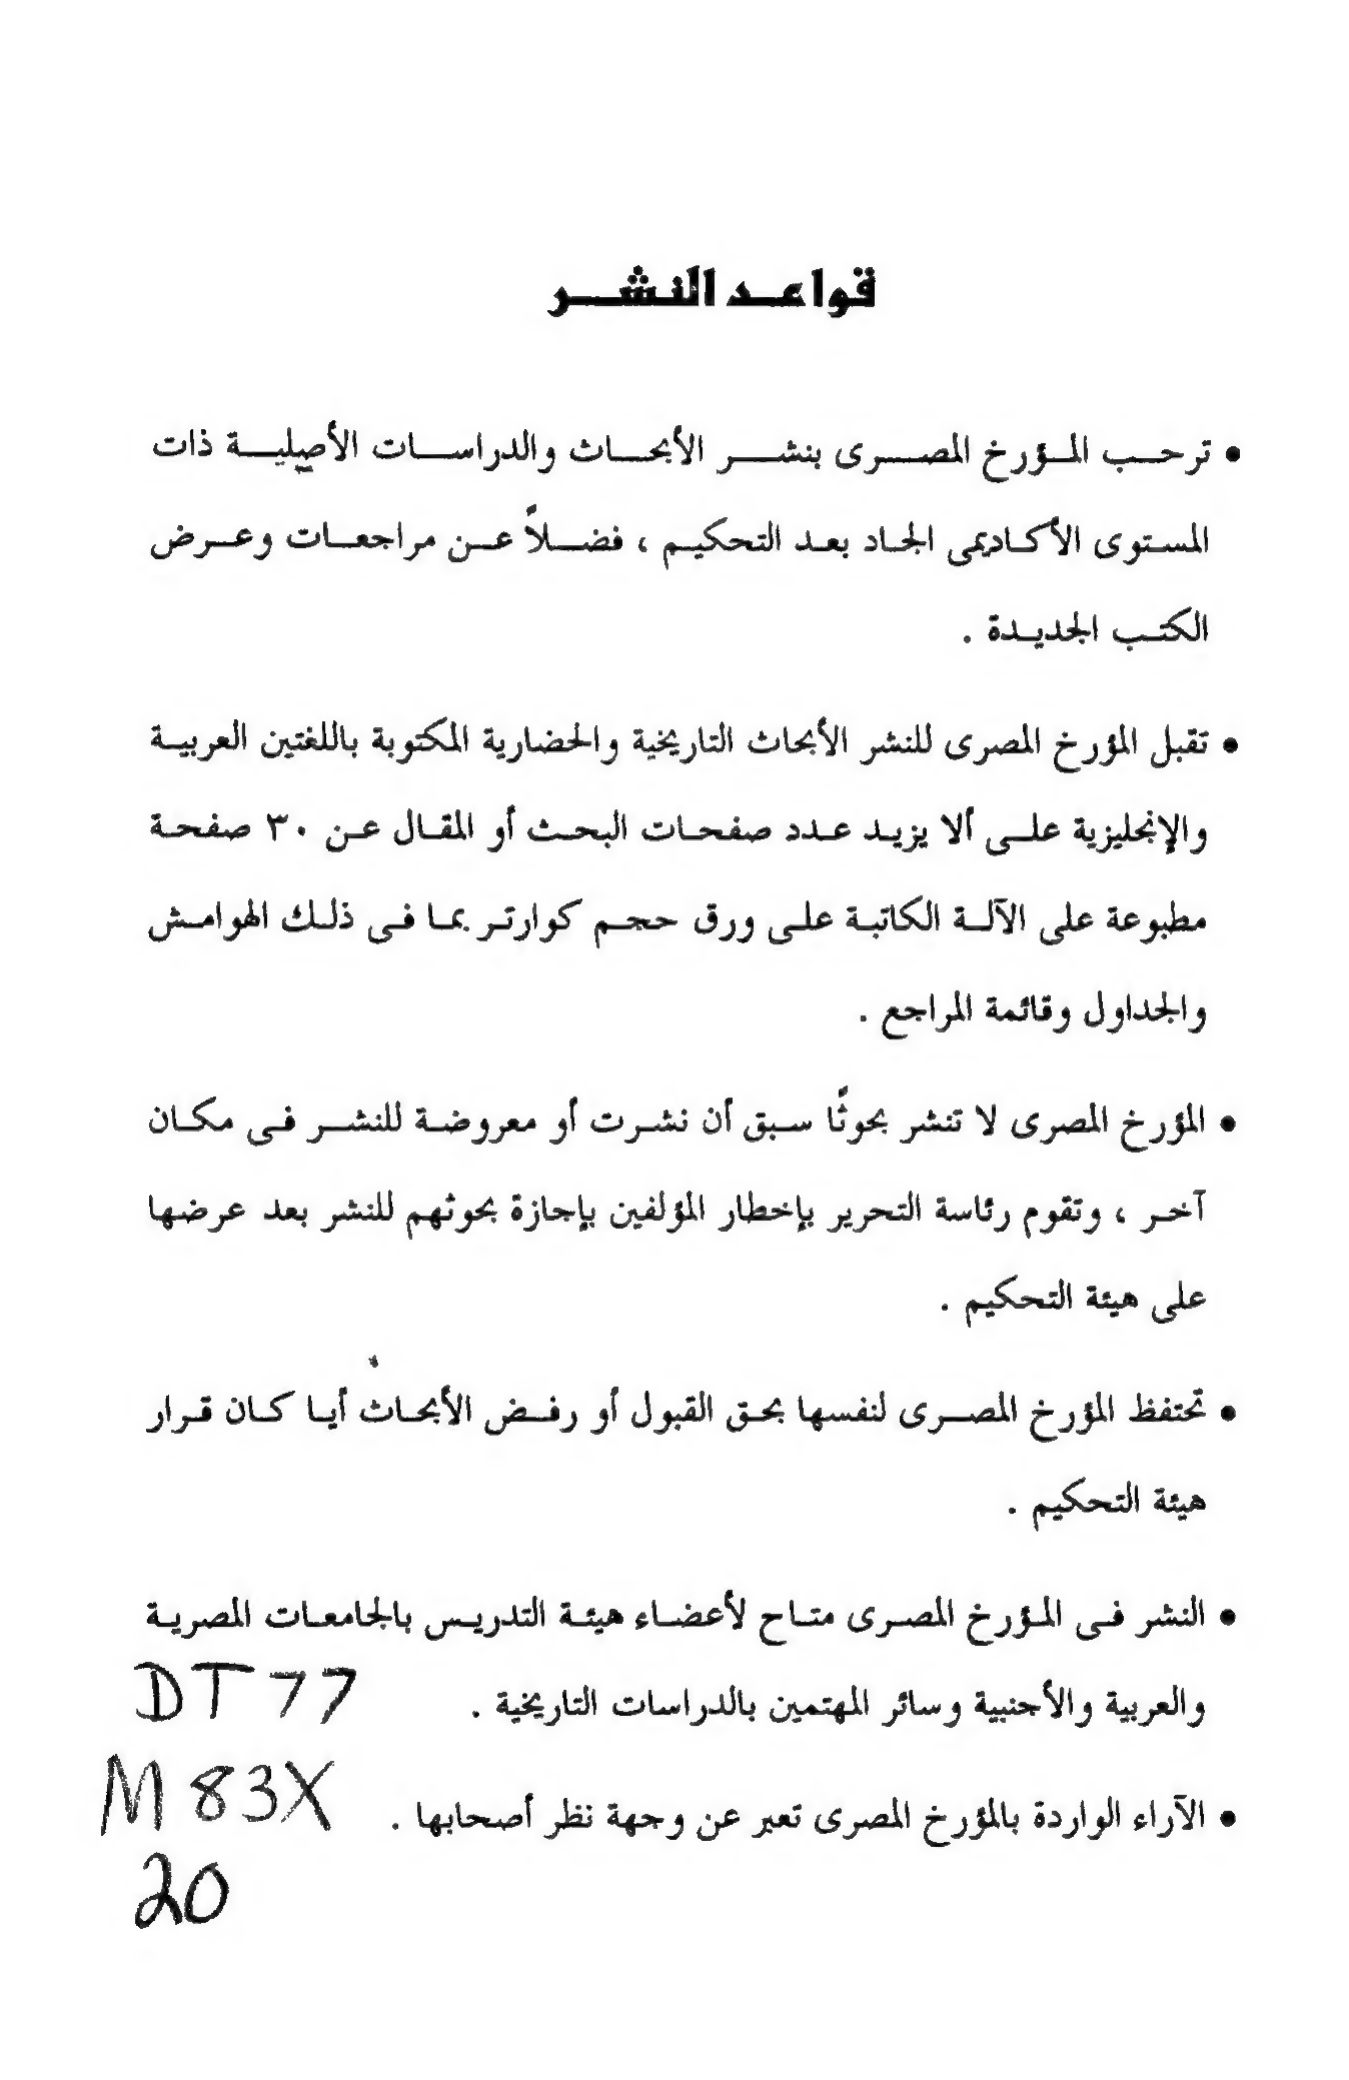 قواعد النشر
• ترحب المؤرخ المصرى بنشر الأبحاث والدراسات الأصيلية ذات
المستوى الأكاديمى الجاد بعد التحكيم ، فضلاً عن مراجعات وعرض
الكتب الجديدة .
• تقبل المؤرخ المصرى للنشر الأبحاث التاريخية والحضارية المكتوبة باللغتين العربية
والإنجليزية على ألا يزيد عدد صفحات البحث أو المقال عن ٣٠ صفحة
مطبوعة على الآلة الكاتبة على ورق حجم كوارتر بما فى ذلك الهوامش
والجداول وقائمة المراجع .
• المؤرخ المصرى لا تنشر بحوثًا سبق أن نشرت أو معروضة للنشر فى مكان
آخر ، وتقوم رئاسة التحرير بإخطار المؤلفين بإجازة بحوثهم للنشر بعد عرضها
على هيئة التحكيم .
• تحتفظ المؤرخ المصرى لنفسها بحق القبول أو رفض الأبحاث أيا كان قرار
هيئة التحكيم .
• النشر فى المؤرخ المصرى متاح لأعضاء هيئة التدريس بالجامعات المصرية
والعربية والأجنبية وسائر المهتمين بالدراسات التاريخية .
DT77
• الآراء الواردة بالمؤرخ المصرى تعبر عن وجهة نظر أصحابها .
M83X
20